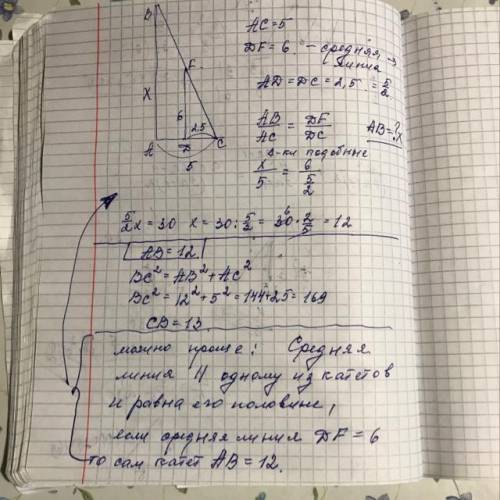 B
AC = 5
DF = 6 – средняя →
линия
AD = DC = 2,5 = 5/2
F
X
6
2,5
A
D
C
5
AB/AC = DF/DC
AB = ? x
Δ-ки подобные
x/5 = 6/(5/2)
5/2 x = 30 x = 30 : 5/2 = 30 · 2/5 = 12
6
AB = 12
BC² = AB² + AC²
BC² = 12² + 5² = 144 + 25 = 169
CB = 13
можно проще: Средняя
линия || одному из катетов
и равна его половине,
если средняя линия DF = 6
то сам катет AB = 12.